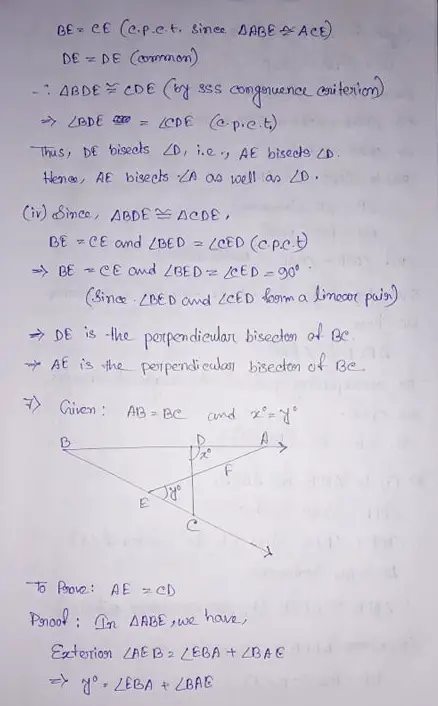 BE = CE (c.p.c.t. since ΔABE ≅ ACE)
DE = DE (common)
∴ ΔBDE ≅ CDE (by SSS congruence criterion)
⇒ ∠BDE = ∠CDE (c.p.c.t)
Thus, DE bisects ∠D, i.e., AE bisects ∠D.
Hence, AE bisects ∠A as well as ∠D.
(iv) Since, ΔBDE ≅ ΔCDE,
BE = CE and ∠BED = ∠CED (c.p.c.t)
⇒ BE = CE and ∠BED = ∠CED = 90°
(Since ∠BED and ∠CED form a linear pair)
⇒ DE is the perpendicular bisector of BC.
→ AE is the perpendicular bisector of BC.
7) Given: AB = BC and x° = y°
B D A
x°
F
E y°
C
To Prove: AE = CD
Proof: In ΔABE, we have,
Exterior ∠AEB = ∠EBA + ∠BAE
⇒ y° = ∠EBA + ∠BAE